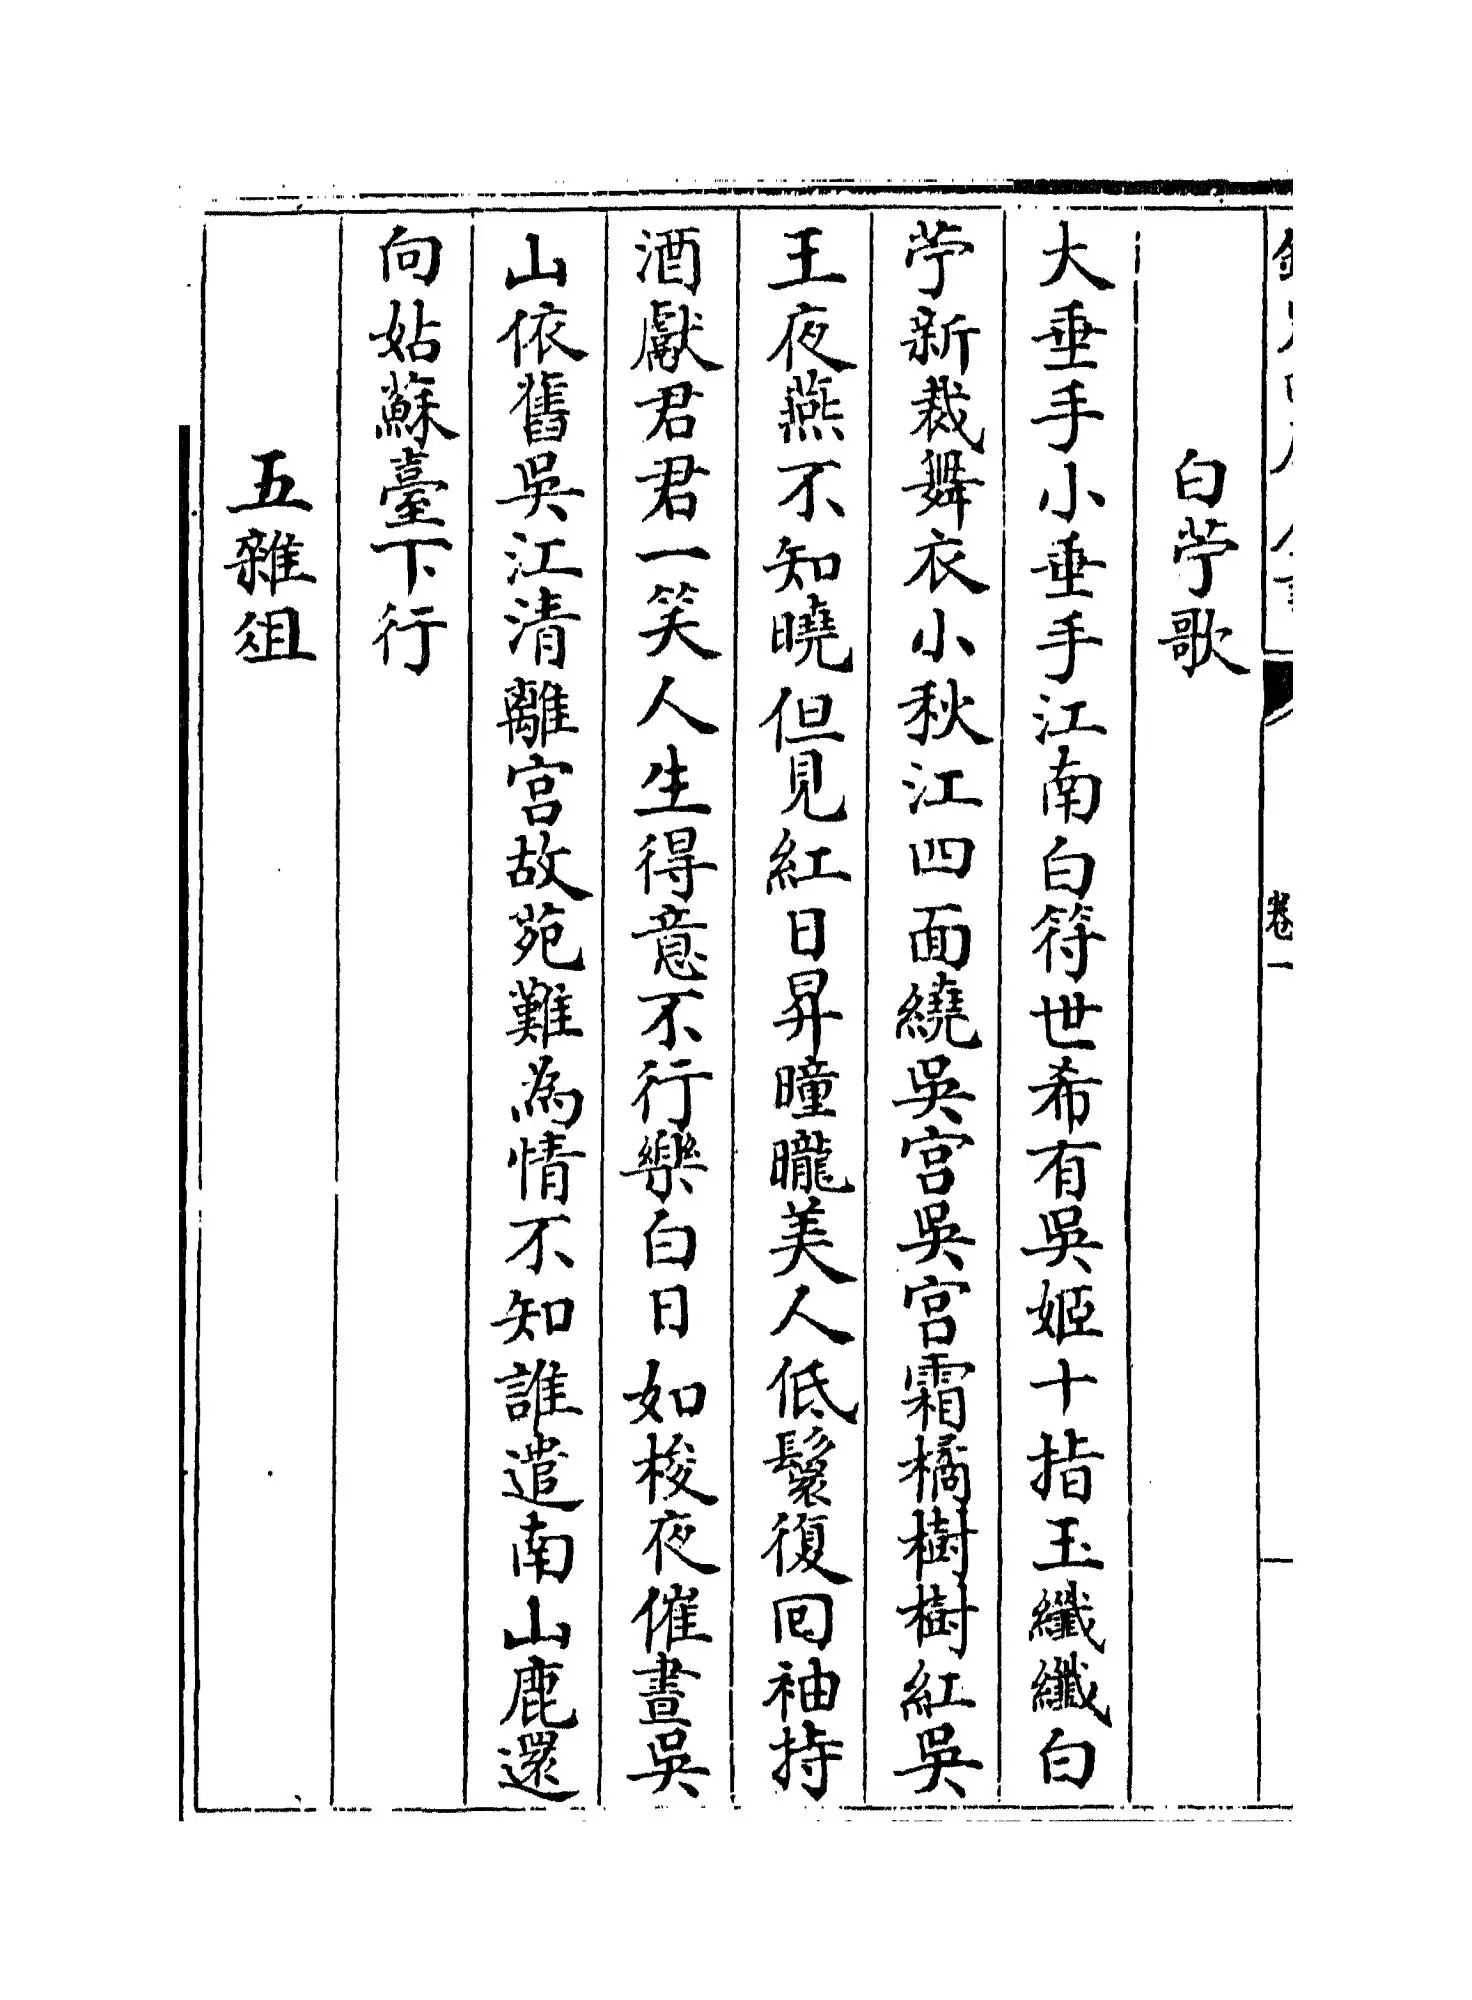 白苧歌
大垂手小垂手江南白符世希有吳姬十指玉纖纖白
苧新裁舞衣小秋江四面繞吳宮吳宮霜橘樹樹紅吳
王夜燕不知曉但見紅日昇曈曨美人低鬟復回袖持
酒獻君君一笑人生得意不行樂白日如梭夜催晝吳
山依舊吳江清離宮故苑難為情不知誰遣南山鹿還
向姑蘇臺下行
五雜俎
卷一